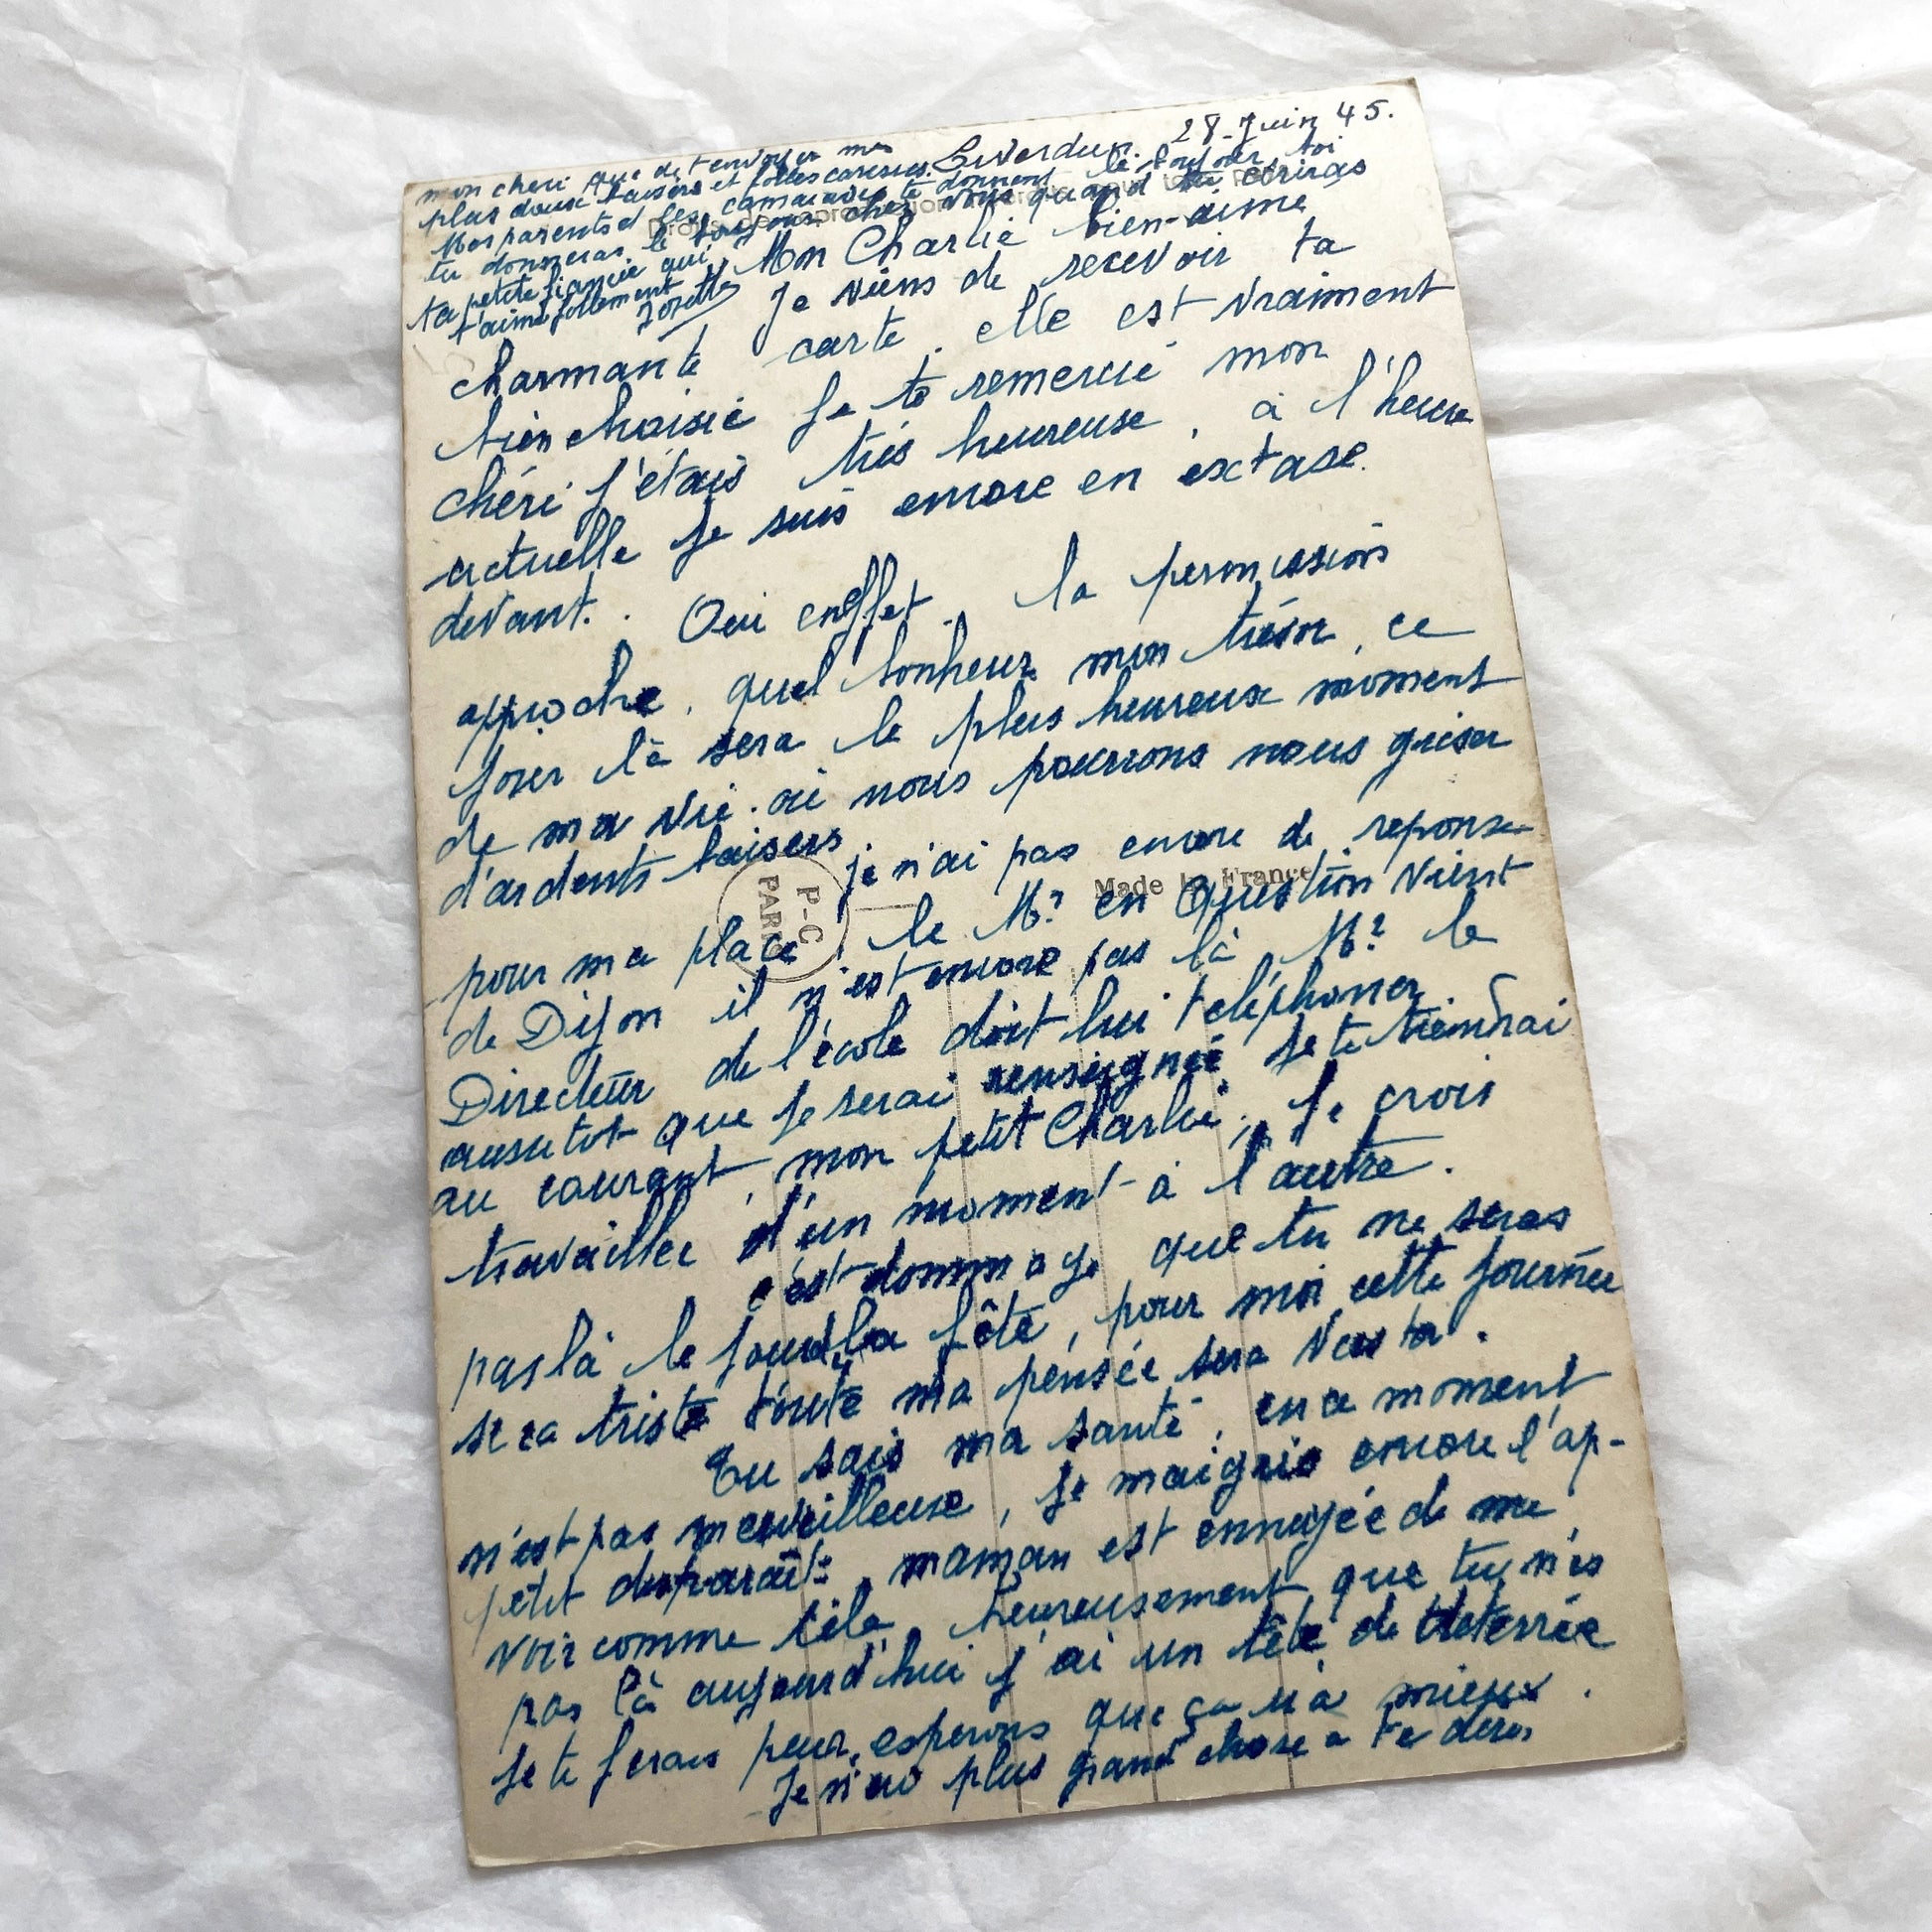 Liverdun. 28-Juin 45.
Mon Charlie bien-aimé
Je viens de recevoir ta
charmante carte. elle est vraiment
bien choisie Je te remercie mon
chéri j'étais très heureuse, à l'heure
actuelle je suis encore en extase.
devant. Oui enffet. la permissions
approche, quel bonheur mon trésor, ce
jour là sera le plus heureux moment
de ma vie. où nous pourrons nous griser
d'ardents baisers je n'ai pas encore de reponse
pour ma place, le Mr en Question vient
de Dijon il n'est encore pas là Mr le
Directeur de l'école doit lui téléphoner
aussitot que je serai renseignée je te tiendrai
au courant, mon petit Charlie, Je crois
travailler d'un moment à l'autre.
c'est dommage que tu ne seras
pas là le jour de la fête, pour moi cette journée
sera triste toute ma pensée sera vers toi.
Tu sais ma santé, en ce moment
n'est pas merveilleuse, je maigris encore l'ap-
petit disparaît, maman est ennuyée de me
voir comme cela, heureusement que tu n'es
pas là aujourd'hui j'ai un tête de déterrée
je te ferais peur, esperons que ça ira mieux.
Je n'ai plus grand chose a te dire,
mon cheri que de t'envoyer mes
plus doux baisers et folles caresses.
Mes parents et les camarades te donnent le bonjour toi
tu donneras le bonjour chez vous quand tu ecriras
ta petite fiancée qui
t'aime follement
Josette
P-C
PARIS
Made in France